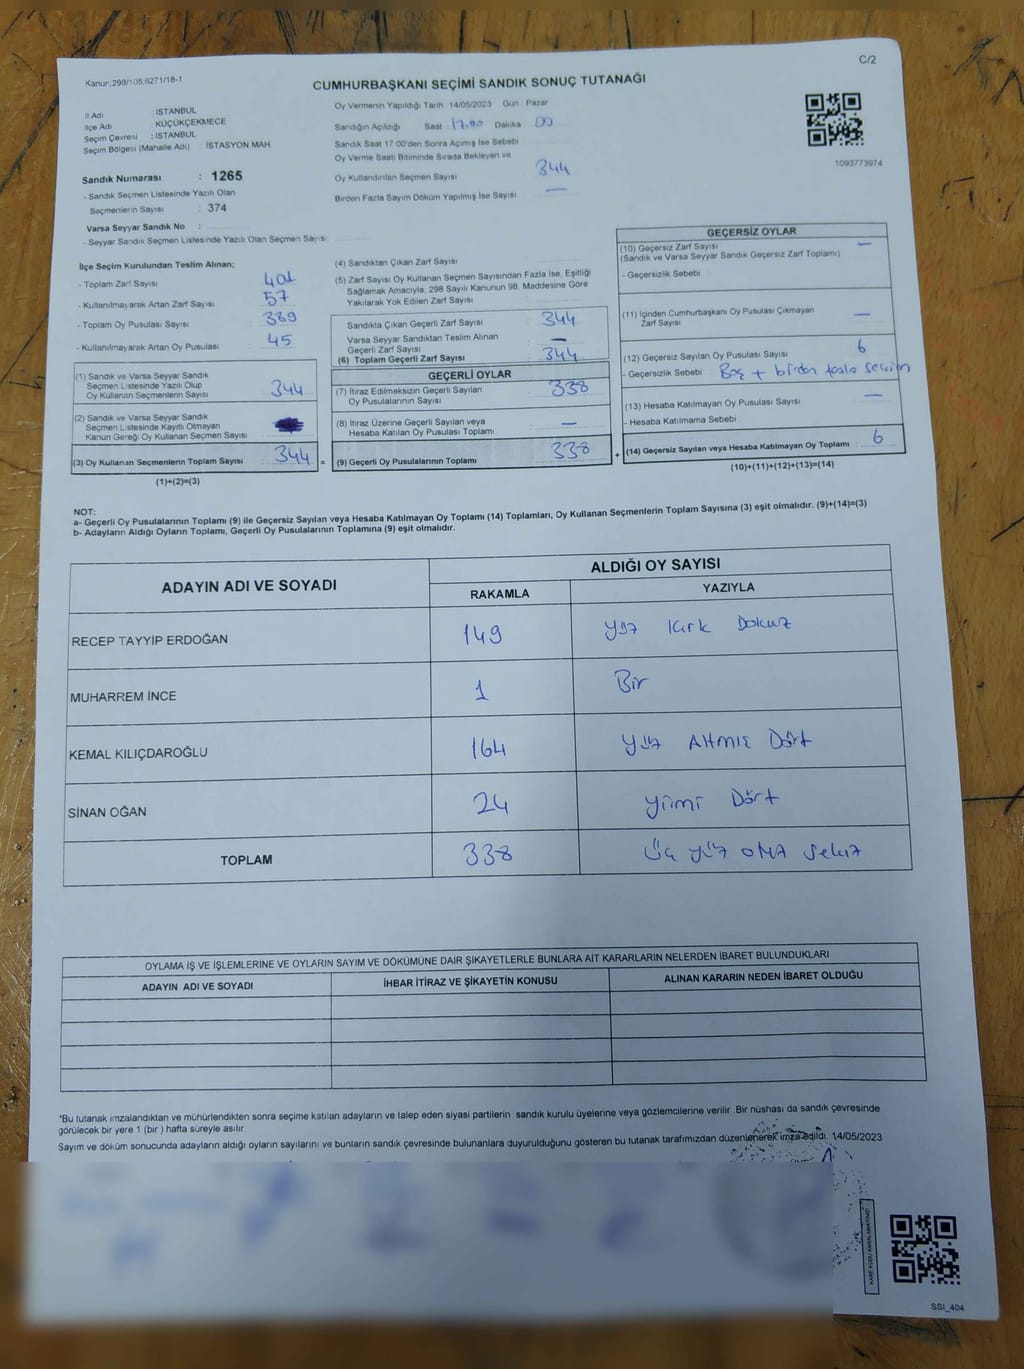 C/2
Kanun 298/105;6271/18-1
CUMHURBAŞKANI SEÇİMİ SANDIK SONUÇ TUTANAĞI
İl Adı : İSTANBUL
İlçe Adı : KÜÇÜKÇEKMECE
Seçim Çevresi : İSTANBUL
Seçim Bölgesi (Mahalle Adı) : İSTASYON MAH
Sandık Numarası : 1265
- Sandık Seçmen Listesinde Yazılı Olan
Seçmenlerin Sayısı : 374
Varsa Seyyar Sandık No :
- Seyyar Sandık Seçmen Listesinde Yazılı Olan Seçmen Sayısı:
Oy Vermenin Yapıldığı Tarih 14/05/2023 Gün Pazar
Sandığın Açıldığı Saat 17.00 Dakika 00
Sandık Saat 17 00'den Sonra Açılmış İse Sebebi
Oy Verme Saati Bitiminde Sırada Bekleyen ve
Oy Kullandırılan Seçmen Sayısı 344
Birden Fazla Sayım Döküm Yapılmış İse Sayısı —
1093773974
İlçe Seçim Kurulundan Teslim Alınan;
- Toplam Zarf Sayısı 401
- Kullanılmayarak Artan Zarf Sayısı 57
- Toplam Oy Pusulası Sayısı 389
- Kullanılmayarak Artan Oy Pusulası 45
(1) Sandık ve Varsa Seyyar Sandık
Seçmen Listesinde Yazılı Olup
Oy Kullanan Seçmenlerin Sayısı 344
(2) Sandık ve Varsa Seyyar Sandık
Seçmen Listesinde Kayıtlı Olmayan
Kanun Gereği Oy Kullanan Seçmen Sayısı
(3) Oy Kullanan Seçmenlerin Toplam Sayısı 344 =
(1)+(2)=(3)
(4) Sandıktan Çıkan Zarf Sayısı
(5) Zarf Sayısı Oy Kullanan Seçmen Sayısından Fazla İse, Eşitliği
Sağlamak Amacıyla, 298 Sayılı Kanunun 98. Maddesine Göre
Yakılarak Yok Edilen Zarf Sayısı
Sandıkta Çıkan Geçerli Zarf Sayısı 344
Varsa Seyyar Sandıktan Teslim Alınan
Geçerli Zarf Sayısı —
(6) Toplam Geçerli Zarf Sayısı 344
GEÇERLİ OYLAR
(7) İtiraz Edilmeksizin Geçerli Sayılan
Oy Pusulalarının Sayısı 338
(8) İtiraz Üzerine Geçerli Sayılan veya
Hesaba Katılan Oy Pusulası Toplamı —
(9) Geçerli Oy Pusulalarının Toplamı 338 +
GEÇERSİZ OYLAR
(10) Geçersiz Zarf Sayısı —
(Sandık ve Varsa Seyyar Sandık Geçersiz Zarf Toplamı)
- Geçersizlik Sebebi
(11) İçinden Cumhurbaşkanı Oy Pusulası Çıkmayan
Zarf Sayısı —
(12) Geçersiz Sayılan Oy Pusulası Sayısı 6
- Geçersizlik Sebebi Boş + birden fazla seçim
(13) Hesaba Katılmayan Oy Pusulası Sayısı —
- Hesaba Katılmama Sebebi
(14) Geçersiz Sayılan veya Hesaba Katılmayan Oy Toplamı 6
(10)+(11)+(12)+(13)=(14)
NOT:
a- Geçerli Oy Pusulalarının Toplamı (9) ile Geçersiz Sayılan veya Hesaba Katılmayan Oy Toplamı (14) Toplamları, Oy Kullanan Seçmenlerin Toplam Sayısına (3) eşit olmalıdır. (9)+(14)=(3)
b- Adayların Aldığı Oyların Toplamı, Geçerli Oy Pusulalarının Toplamına (9) eşit olmalıdır.
ADAYIN ADI VE SOYADI
ALDIĞI OY SAYISI
RAKAMLA YAZIYLA
RECEP TAYYİP ERDOĞAN 149 yüz kırk Dokuz
MUHARREM İNCE 1 Bir
KEMAL KILIÇDAROĞLU 164 yüz Altmış Dört
SİNAN OĞAN 24 yirmi Dört
TOPLAM 338 üç yüz otuz sekiz
OYLAMA İŞ VE İŞLEMLERİNE VE OYLARIN SAYIM VE DÖKÜMÜNE DAİR ŞİKAYETLERLE BUNLARA AİT KARARLARIN NELERDEN İBARET BULUNDUKLARI
ADAYIN ADI VE SOYADI İHBAR İTİRAZ VE ŞİKAYETİN KONUSU ALINAN KARARIN NEDEN İBARET OLDUĞU
*Bu tutanak imzalandıktan ve mühürlendikten sonra seçime katılan adayların ve talep eden siyasi partilerin sandık kurulu üyelerine veya gözlemcilerine verilir. Bir nüshası da sandık çevresinde
görülecek bir yere 1 (bir ) hafta süreyle asılır.
Sayım ve döküm sonucunda adayların aldığı oyların sayılarını ve bunların sandık çevresinde bulunanlara duyurulduğunu gösteren bu tutanak tarafımızdan düzenlenerek imza edildi. 14/05/2023
SSI_404